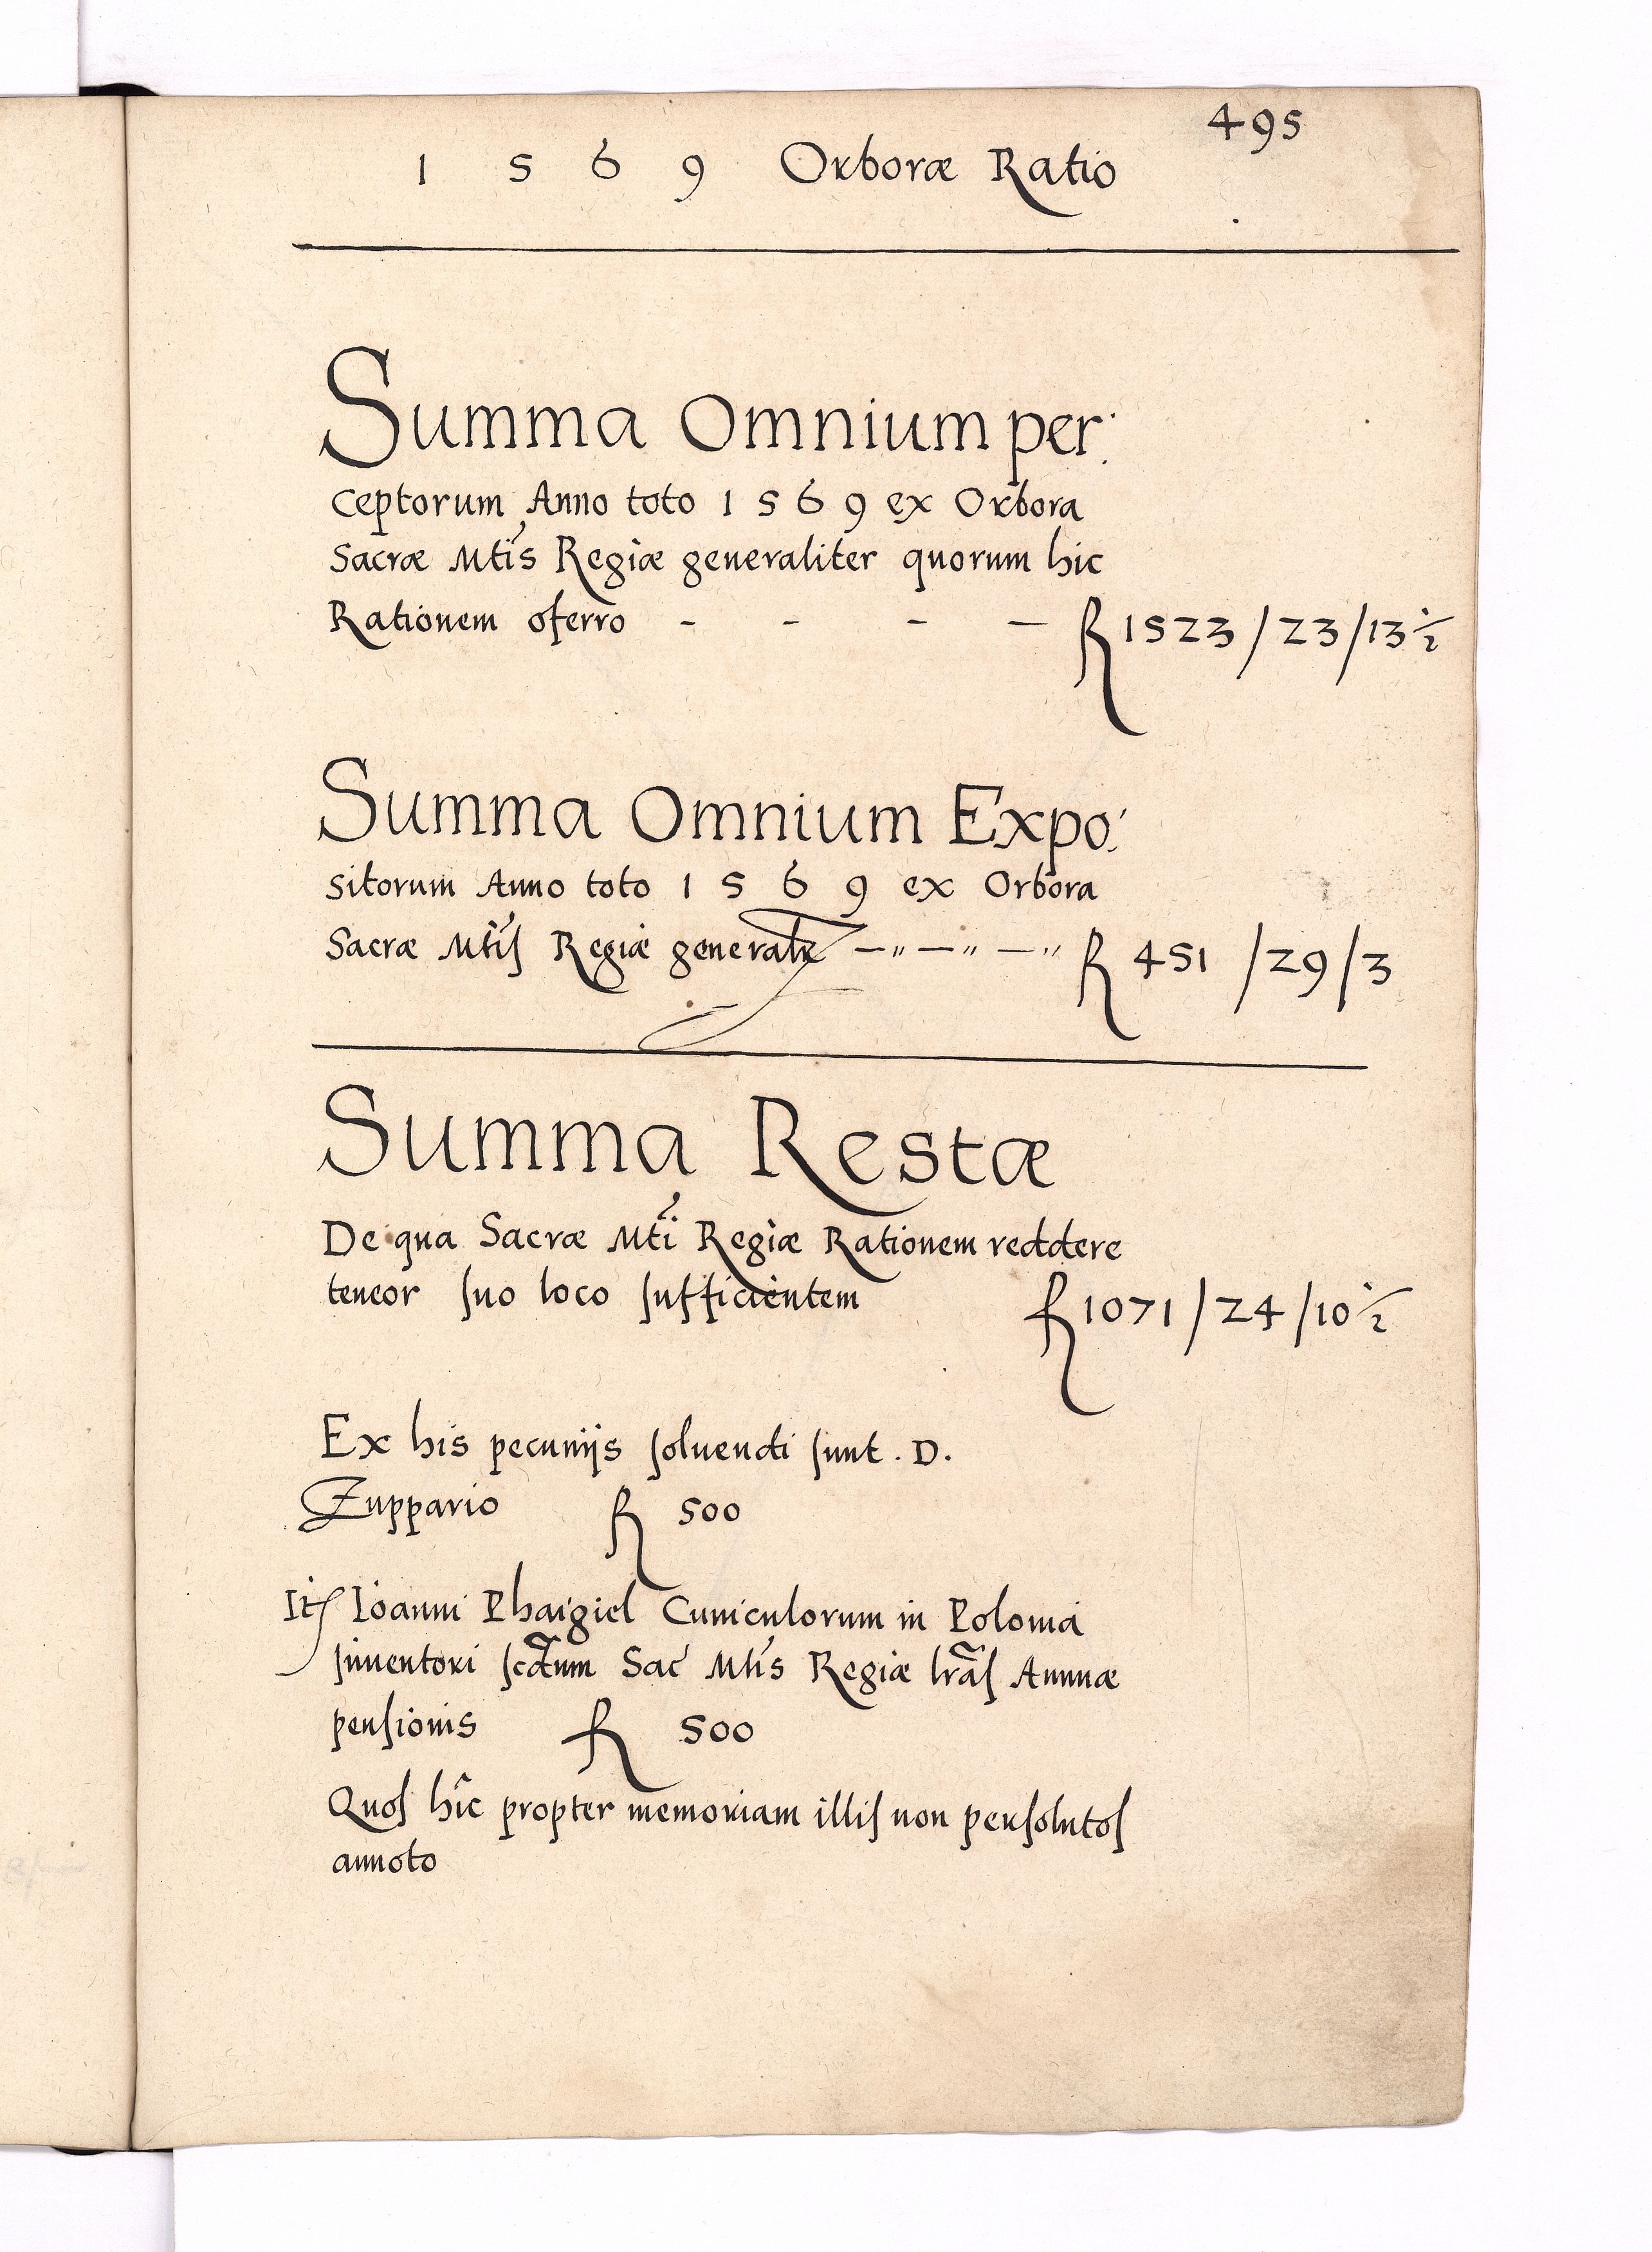 495
1 5 6 9 Orboræ Ratio
Summa Omnium per:
ceptorum Anno toto 1 5 6 9 ex Orbora
Sacræ Mtis Regiæ generaliter quorum hic
Rationem offerro - - - - R 1523 / 23 / 13 ½
Summa Omnium Expo:
sitorum Anno toto 1 5 6 9 ex Orbora
Sacræ Mtis Regiæ generalr —„—„—„ R 451 / 29 / 3
Summa Restæ
De qua Sacræ Mti Regiæ Rationem reddere
teneor suo loco sufficientem R 1071 / 24 / 10 ½
Ex his pecunijs soluendi sunt . D.
Zuppario R 500
Itē Ioanni Phaigiel Cuniculorum in Polonia
inuentori scdum Sac Mtis Regiæ lras Annuæ
pensionis R 500
Quos hic propter memoriam illis non persolutos
annoto